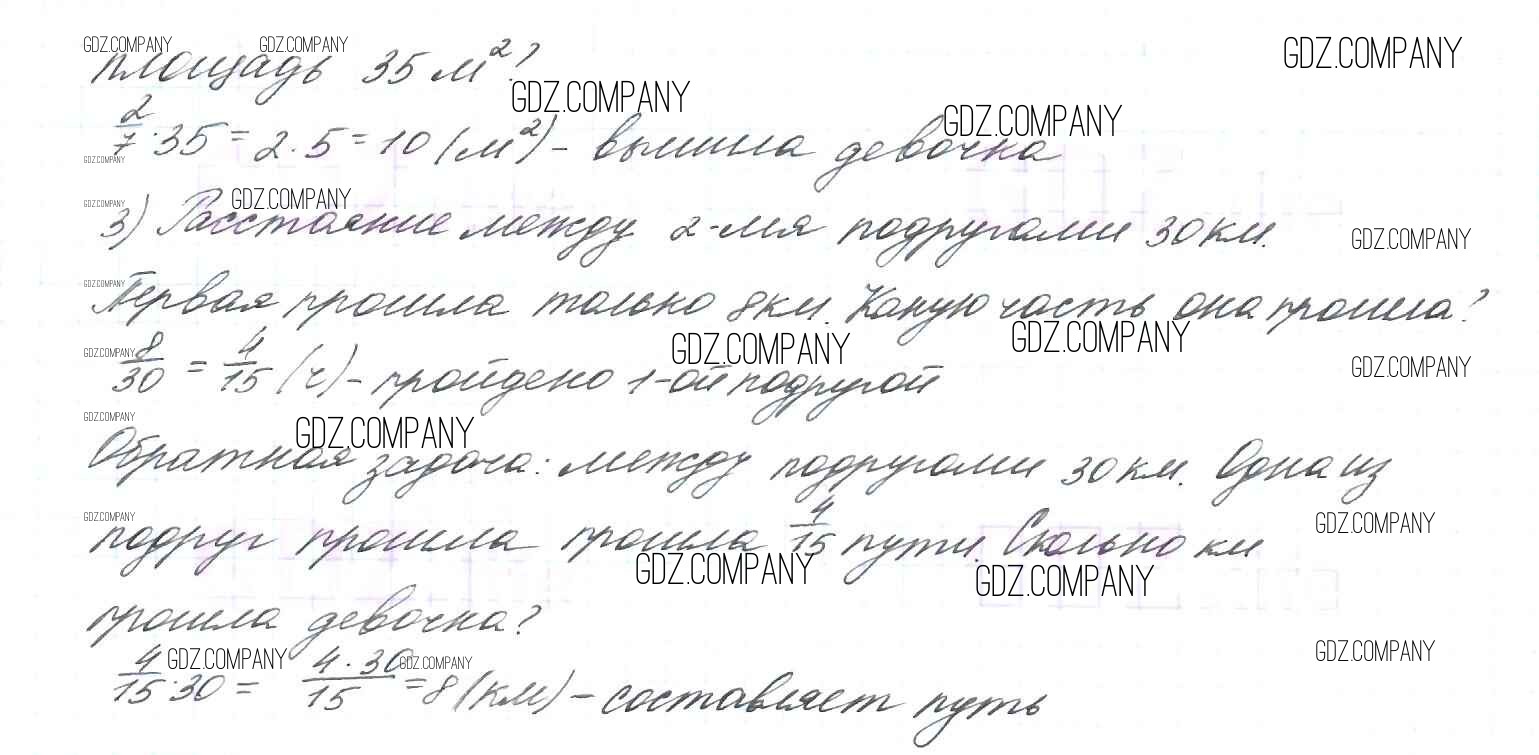 GDZ.COMPANY GDZ.COMPANY GDZ.COMPANY
площадь 35 м²?
GDZ.COMPANY GDZ.COMPANY
2/7 · 35 = 2 · 5 = 10 (м²) – вымыла девочка
GDZ.COMPANY
GDZ.COMPANY GDZ.COMPANY
3) Расстояние между 2-мя подругами 30 км.
GDZ.COMPANY
GDZ.COMPANY
Первая прошла только 8 км. Какую часть она прошла?
GDZ.COMPANY GDZ.COMPANY GDZ.COMPANY GDZ.COMPANY
8/30 = 4/15 (ч) – пройдено 1-ой подругой
GDZ.COMPANY GDZ.COMPANY
Обратная задача: между подругами 30 км. Одна из
GDZ.COMPANY GDZ.COMPANY
подруг прошла прошла 4/15 пути. Сколько км
GDZ.COMPANY GDZ.COMPANY
прошла девочка?
GDZ.COMPANY GDZ.COMPANY GDZ.COMPANY
4/15 · 30 = 4 · 30/15 = 8 (км) – составляет путь